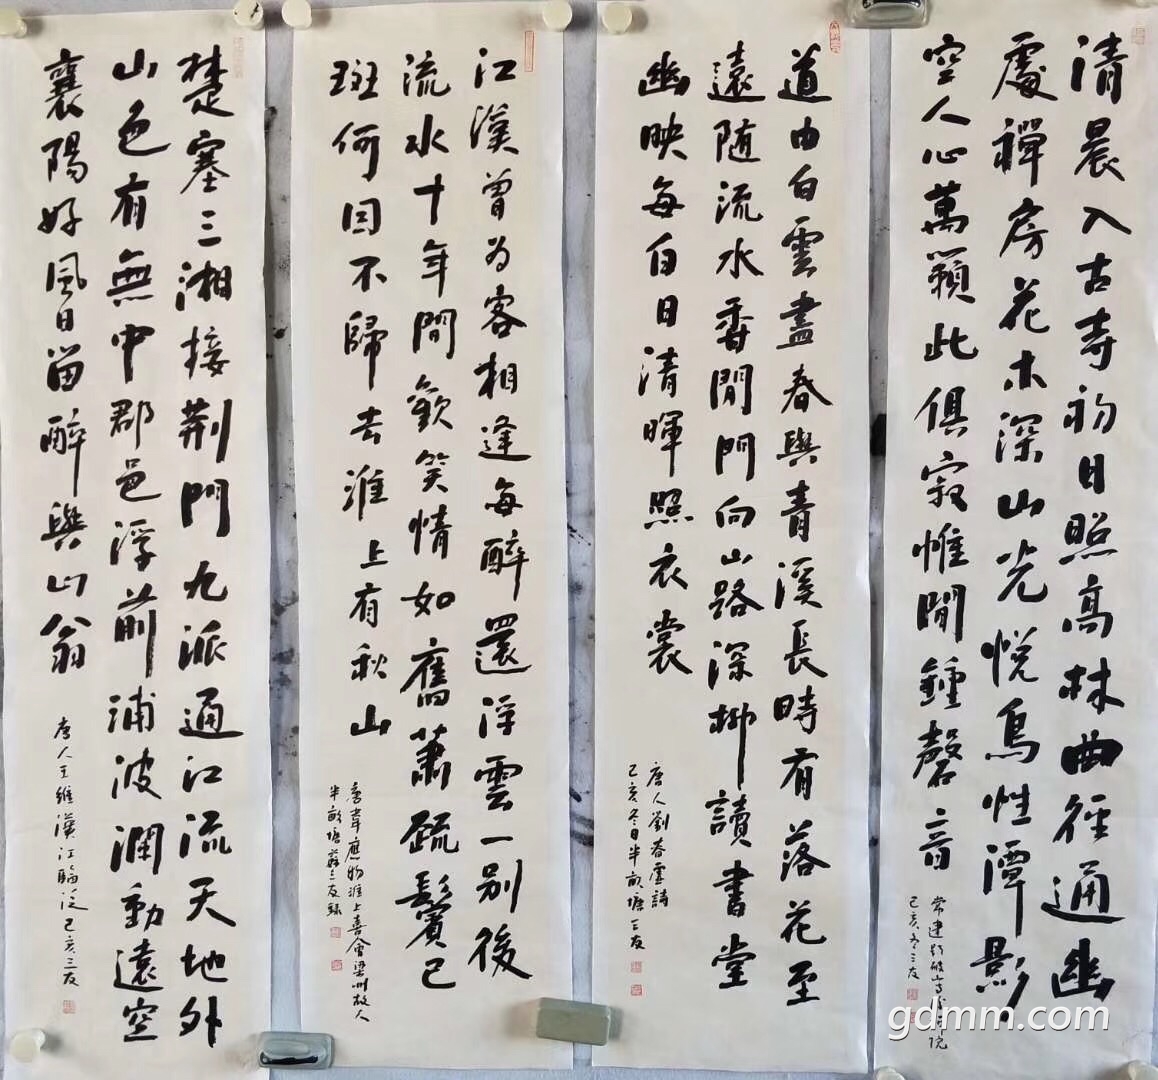 清晨入古寺初日照高林曲径通幽
處禪房花木深山光悅鳥性潭影
空人心萬籟此俱寂惟聞鍾磬音
常建題破山寺後禪院
己亥冬三友
道由白雲盡春與青溪長時有落花至
遠随流水香閒門向山路深柳讀書堂
幽映每白日清暉照衣裳
唐人劉眘虛詩
己亥冬日半畝塘三友
江漢曾为客相逢每醉還浮雲一別後
流水十年間歡笑情如舊蕭疏鬢已
斑何因不歸去淮上有秋山
唐韋應物淮上喜會梁州故人
半畝塘蘇三友録
楚塞三湘接荆門九派通江流天地外
山色有無中郡邑浮前浦波瀾動遠空
襄陽好風日留醉與山翁
唐人王維漢江臨泛己亥三友
gdmm.com